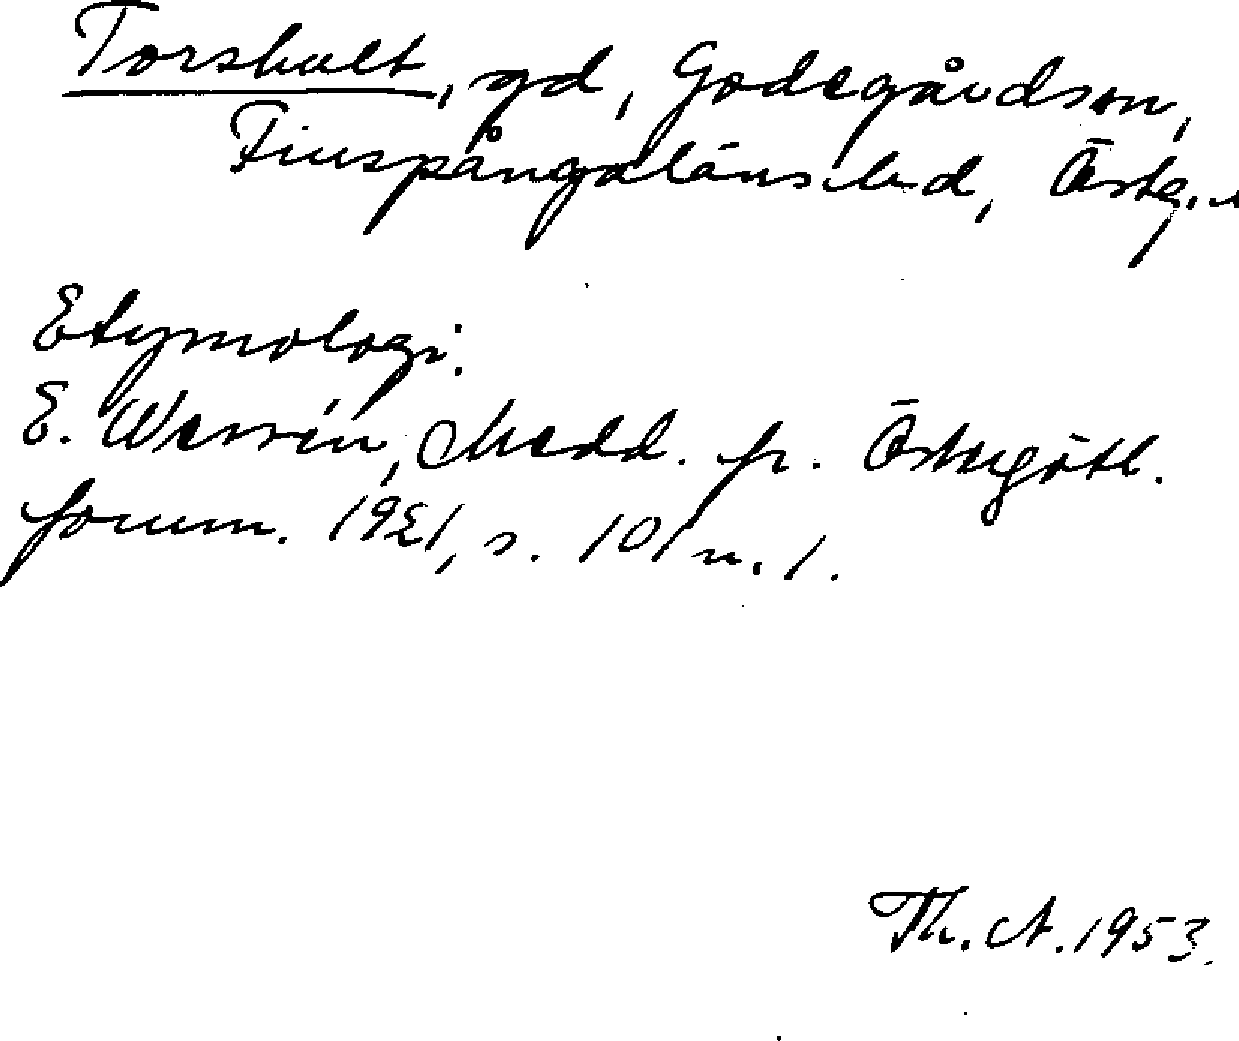 Torshult, gd, Godegårdssn,
Finspångalänshd, Östg.
Etymologi.
E. Wessén, Medd. fr. Östergötl.
fornm. 1921, s. 101 n. 1.
Th. A. 1953.